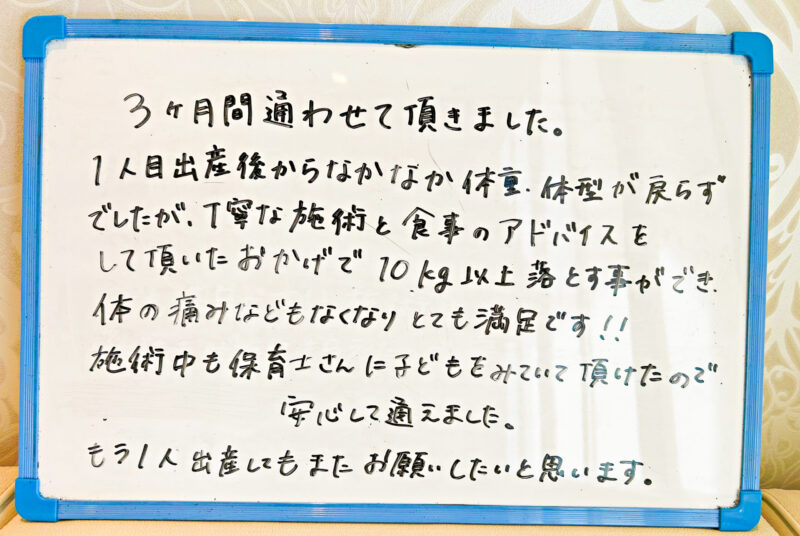 3ヶ月間通わせて頂きました。
1人目出産後からなかなか体重、体型が戻らず
でしたが、丁寧な施術と食事のアドバイスを
して頂いたおかげで10kg以上落とす事ができ、
体の痛みなどもなくなりとても満足です!!
施術中も保育士さんに子どもをみていて頂けたので
安心して通えました。
もう1人出産してもまたお願いしたいと思います。